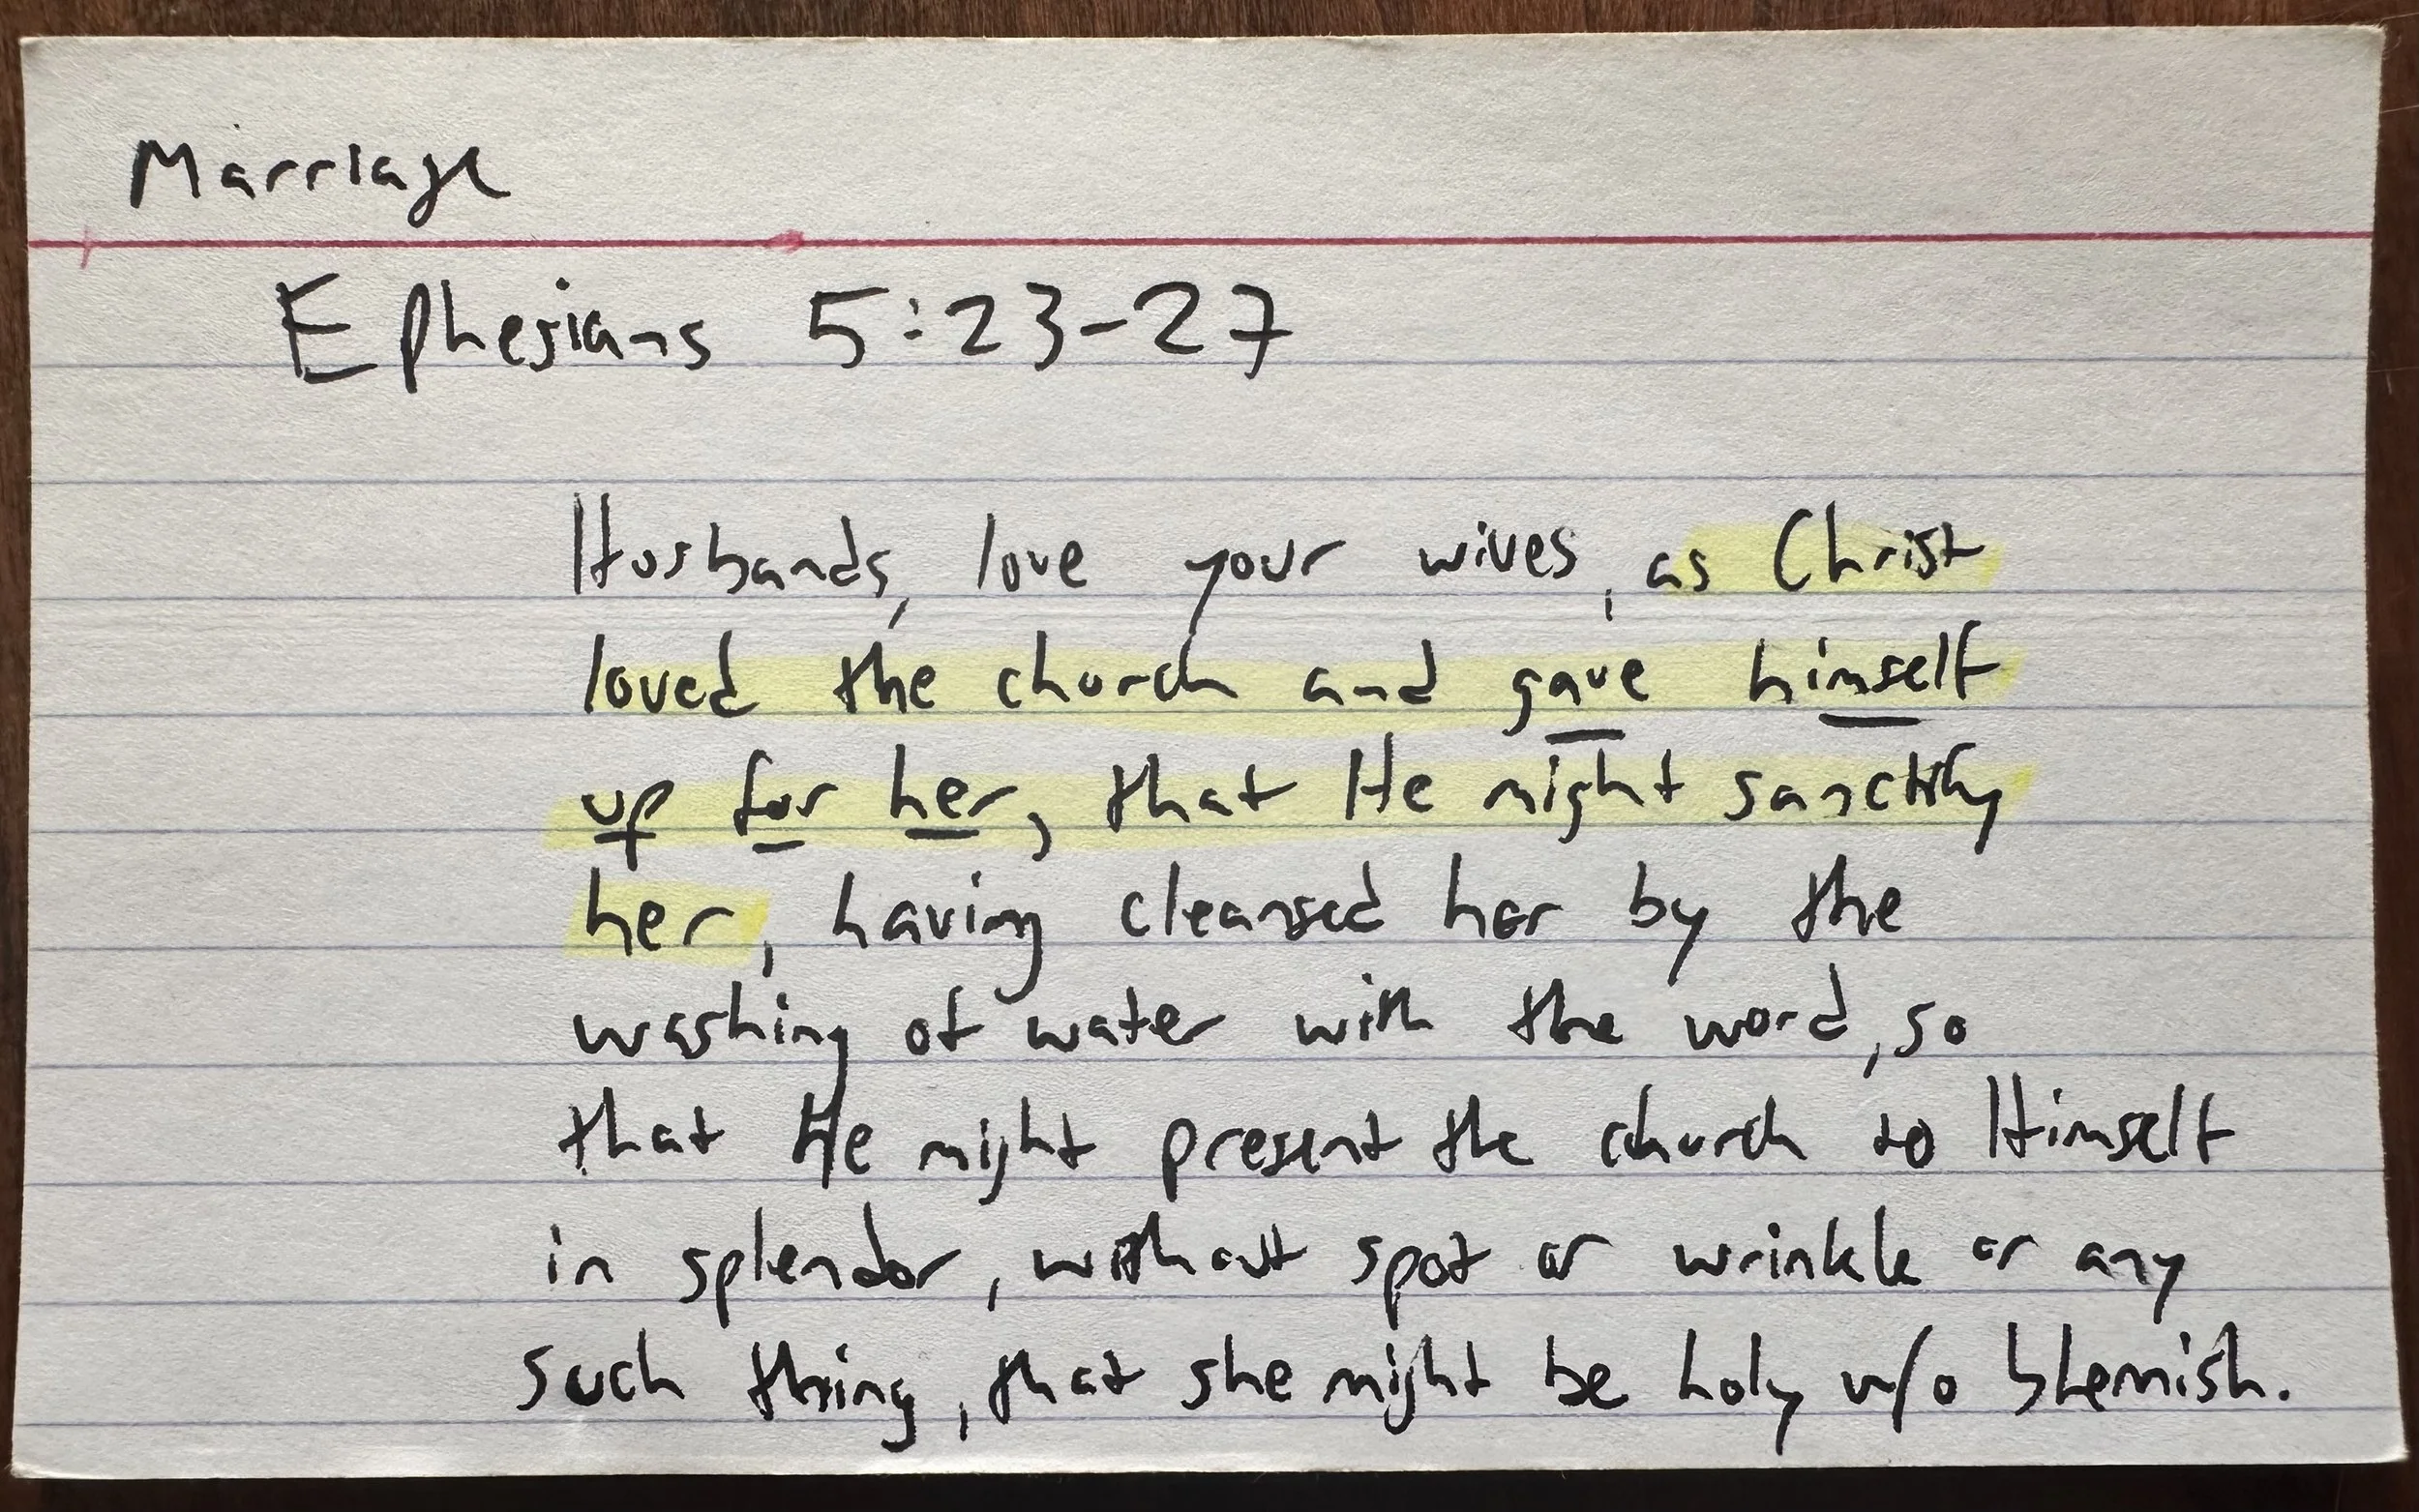 Marriage
Ephesians 5:23-27
Husbands, love your wives, as Christ
loved the church and gave himself
up for her, that He might sanctify
her, having cleansed her by the
washing of water with the word, so
that He might present the church to Himself
in splendor, without spot or wrinkle or any
such thing, that she might be holy w/o blemish.